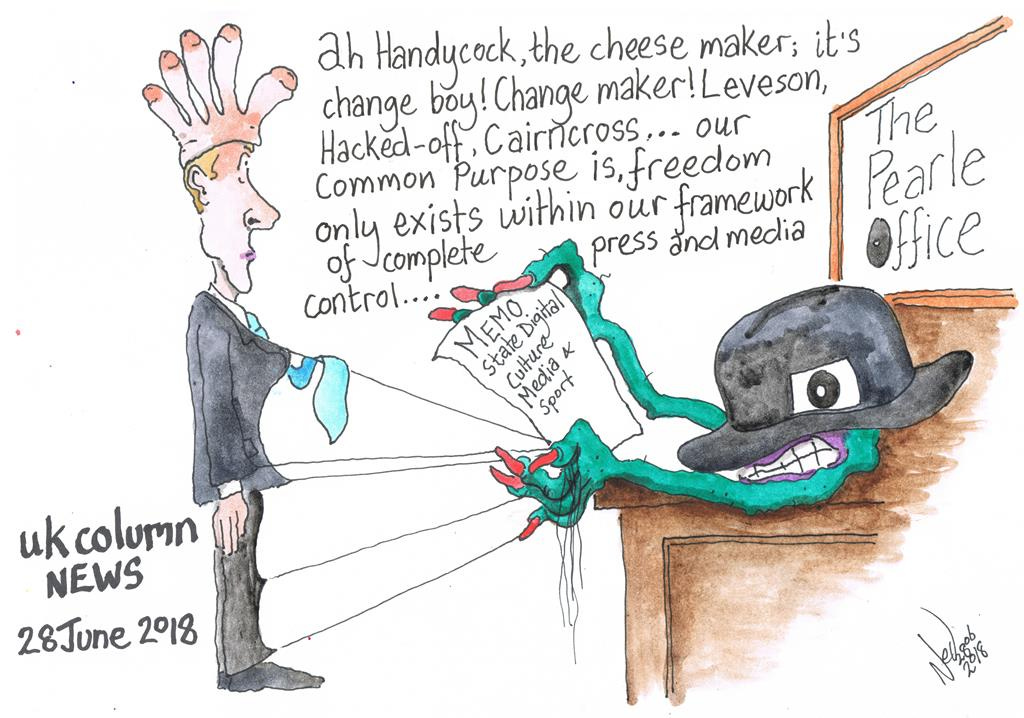 ah Handycock, the cheese maker; it's
change boy! Change maker! Leveson,
Hacked-off, Cairncross... our
Common Purpose is, freedom
only exists within our framework
of complete press and media
control....
The
Pearle
Office
MEMO
State Digital
Culture
Media &
Sport
uk column
NEWS
28 June 2018
2018